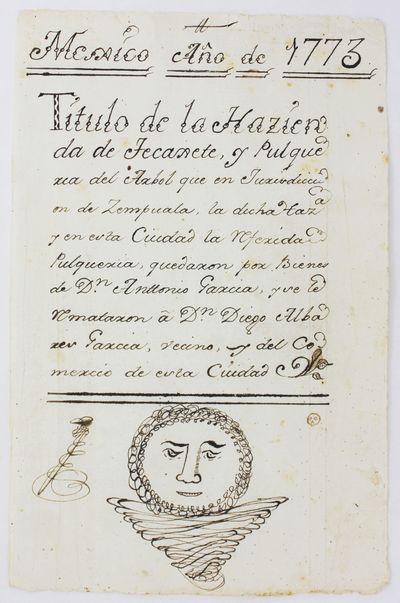 Mexico Año de 1773
Titulo de la Hazien
da de Tecaxete, y Pulque
ria del Arbol que en Jurisdicci
on de Zempuala, la dicha Haz.ª
y en esta Ciudad la referida
Pulqueria, quedaron por Bienes
de D.n Anttonio Garcia, y se le
remataron â D.n Diego Alba
res Garcia, vecino, y del Co
mercio de esta Ciudad